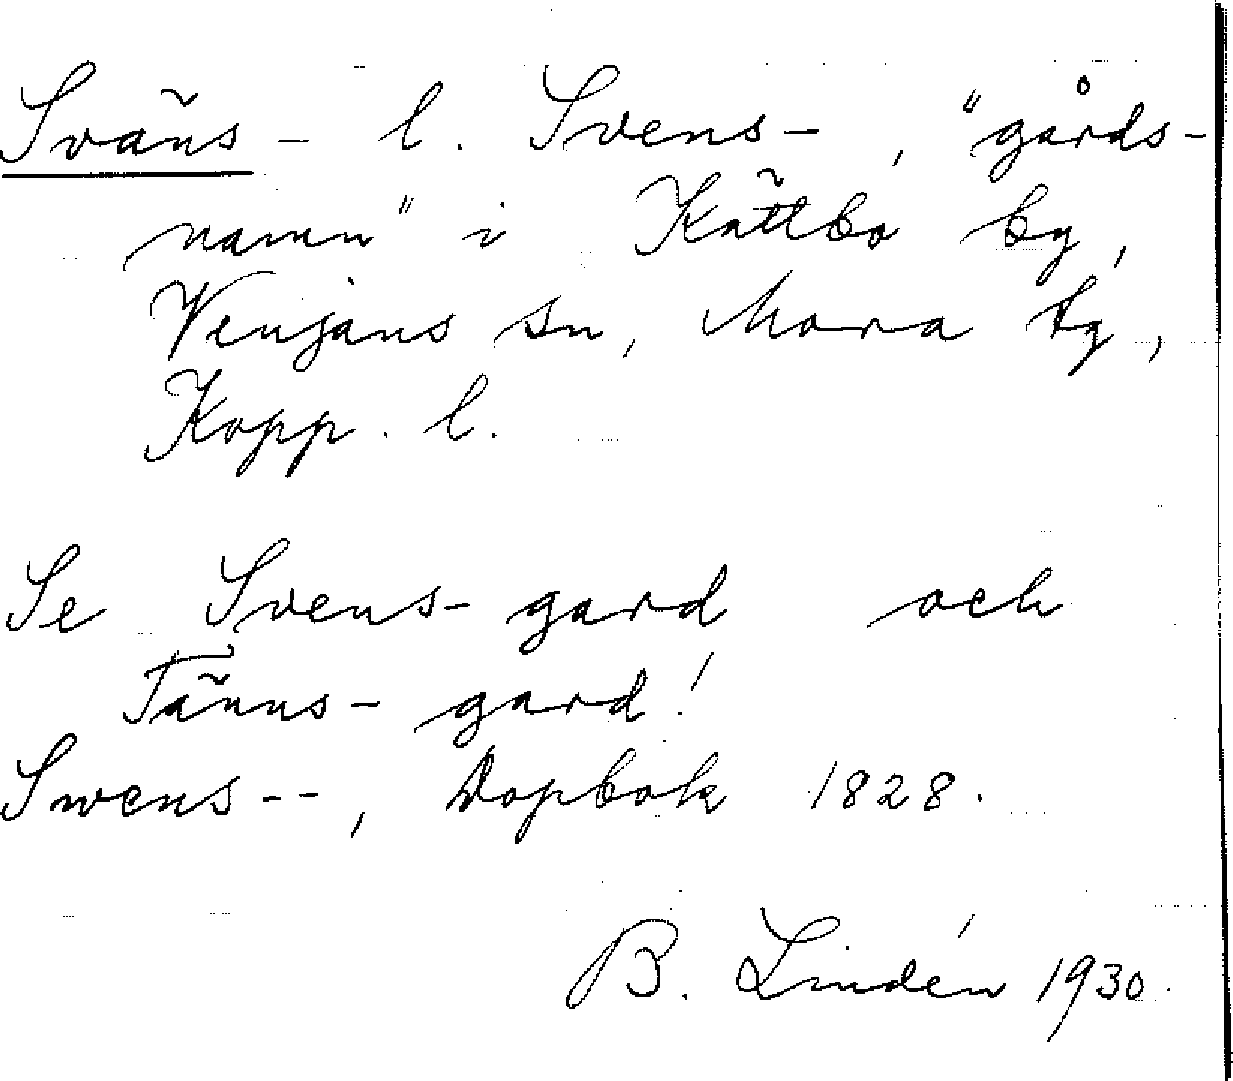 Sväns- l. Svens-, "gårds-
namn" i Kättbo by,
Venjans sn, Mora tg,
Kopp. l.
Se Svens-gard och
Tänns-gard!
Swens--, Dopbok 1828.
B. Lindén 1930.